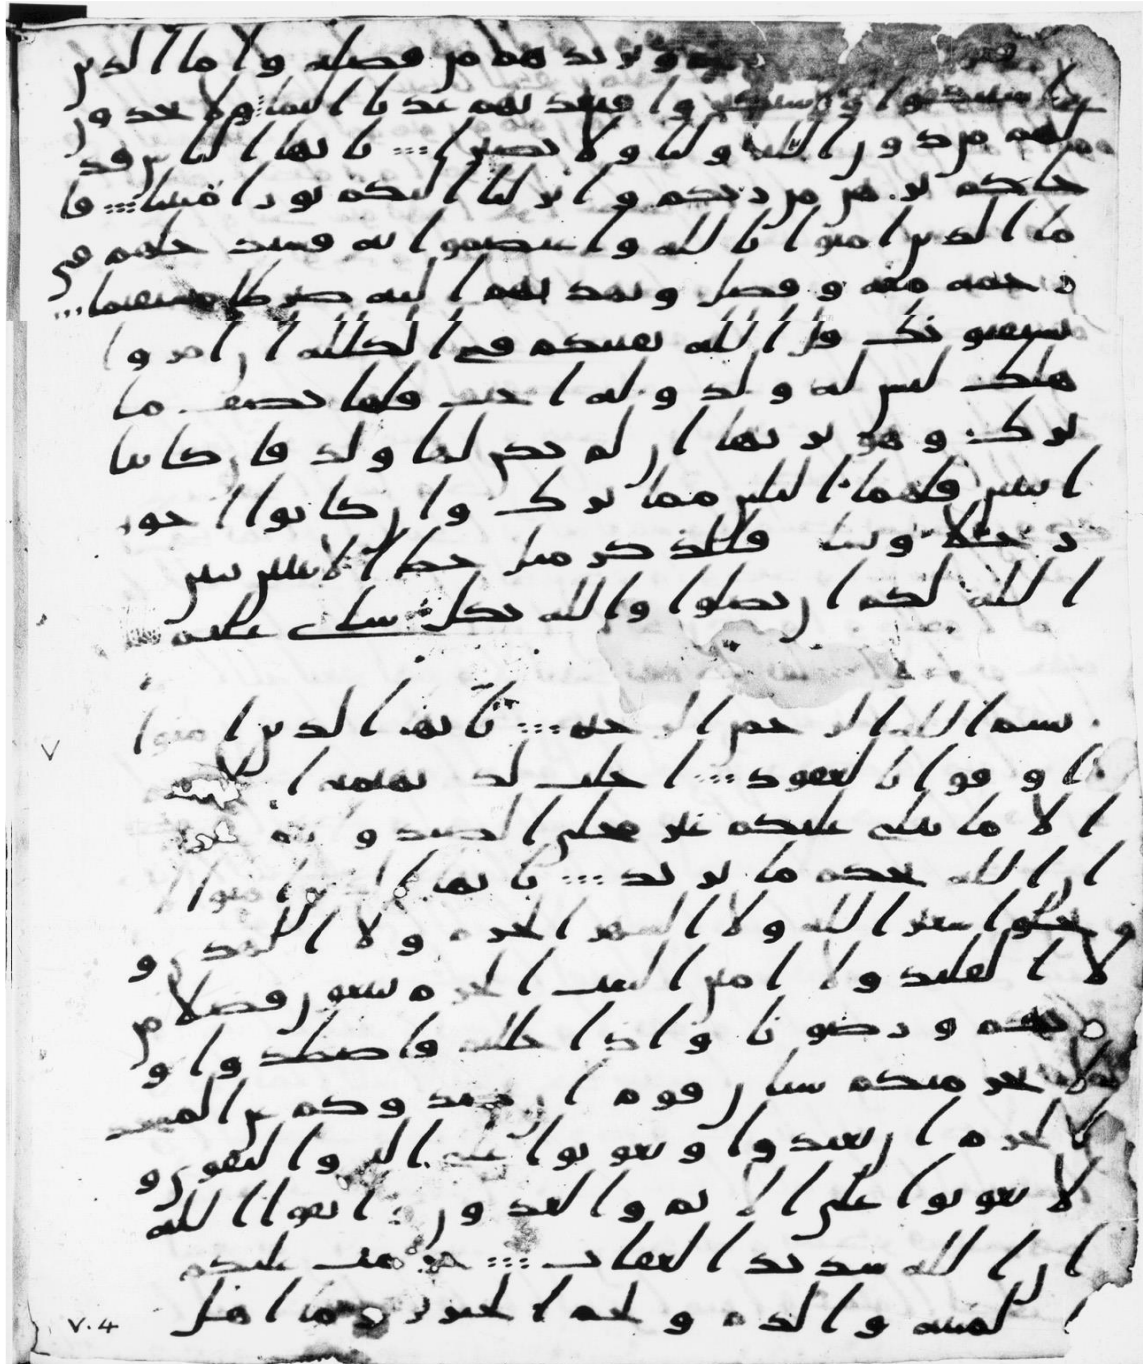 ويزيدهم من فضله واما الذين
استنكفوا واستكبروا فيعذبهم عذبا اليما ولا يجدون
لهم من دون الله وليا ولا نصيرا يايها الناس قد
جاكم برهن من ربكم وانزلنا اليكم نورا مبينا فا
ما الذين امنوا بالله واعتصموا به فسيدخلهم في
رحمة منه وفضل ويهديهم اليه صرطا مستقيما
يستفتونك قل الله يفتيكم في الكللة ان امروا
هلك ليس له ولد وله اخت فلها نصف ما
ترك وهو يرثها ان لم يكن لها ولد فان كانتا
اثنتين فلهما الثلثن مما ترك وان كانوا اخو
ة رجلا ونسا فللذكر مثل حظ الانثيين يبين
الله لكم ان تضلوا والله بكل شاى عليم
بسم الله الرحمن الرحيم يايها الذين امنوا
اوفوا بالعقود احلت لكم بهيمة الانعم
الا ما يتلى عليكم غير محلى الصيد وانتم حرم
ان الله يحكم ما يريد يايها الذين امنوا لا
تحلوا شعير الله ولا الشهر الحرم ولا الهدى و
لا القليد ولا امين البيت الحرم يبتغون فضلا من
ربهم ورضونا واذا حللتم فاصطدوا و
لا يجرمنكم شنان قوم ان صدوكم عن المسجد
الحرم ان تعتدوا وتعونوا على البر والتقوى و
لا تعونوا على الاثم والعدون واتقوا الله
ان الله شديد العقاب حرمت عليكم
الميتة والدم ولحم الخنزير وما اهل
V.4